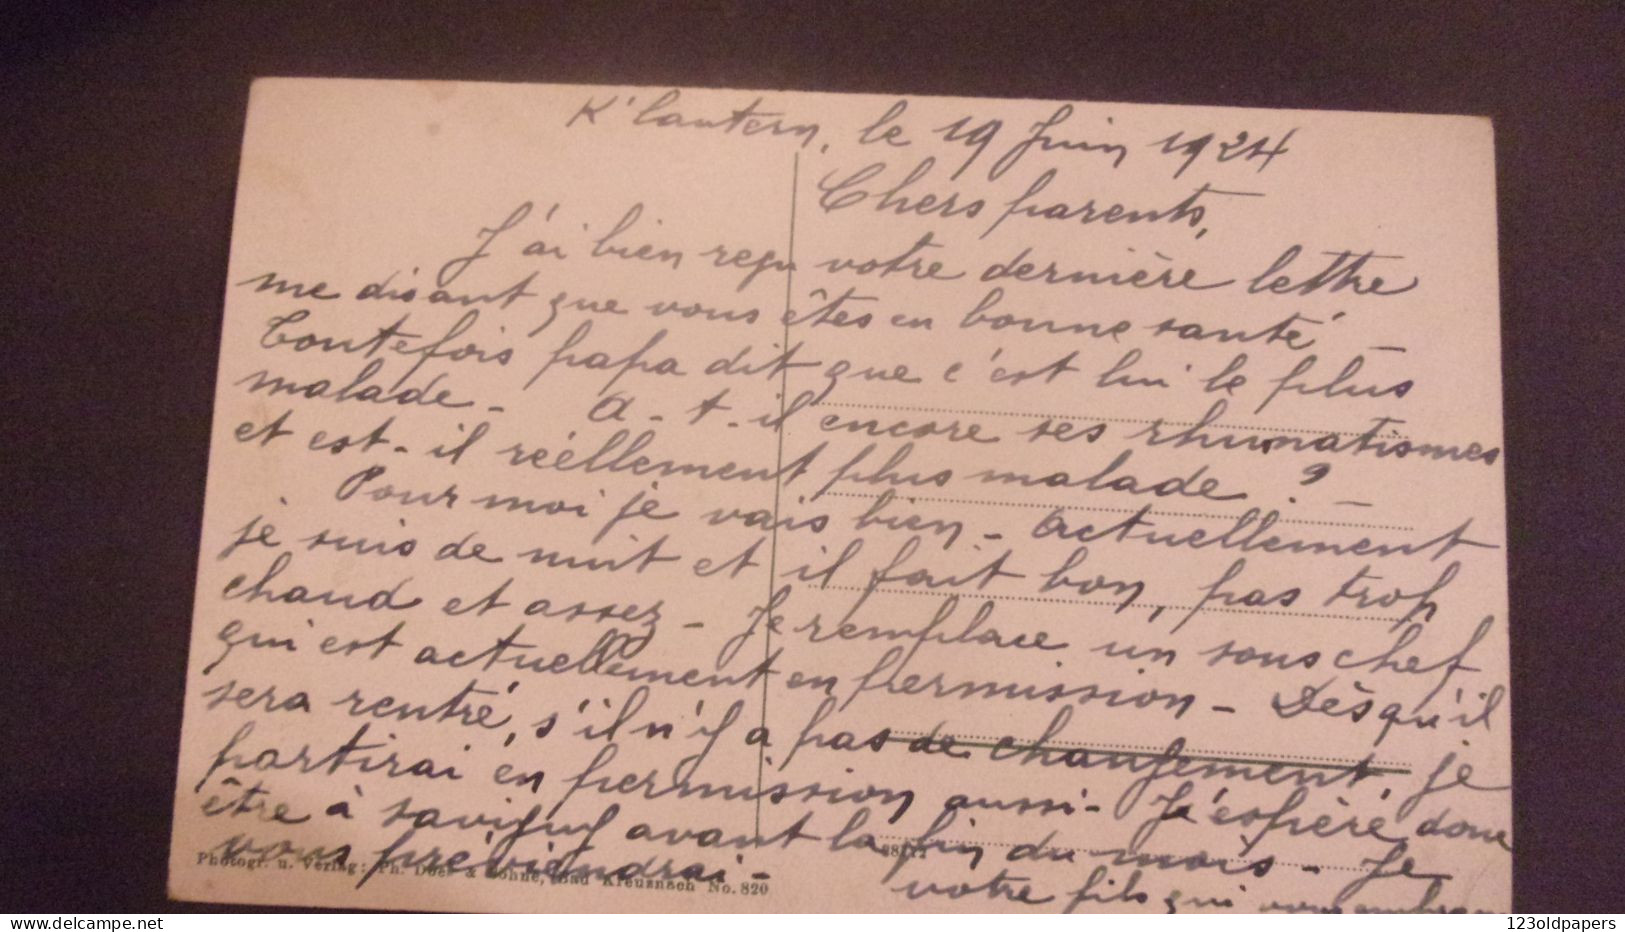 K'lautern, le 19 Juin 1924
Chers parents,
J'ai bien reçu votre dernière lettre
me disant que vous êtes en bonne santé —
Toutefois papa dit que c'est lui le plus
malade - A-t-il encore ses rhumatismes
et est-il réellement plus malade ? —
Pour moi je vais bien - Actuellement
je suis de nuit et il fait bon, pas trop
chaud et assez - Je remplace un sous chef
qui est actuellement en permission - Dès qu'il
sera rentré, s'il n'y a pas de changement, je
partirai en permission aussi - J'espère donc
être à Savigny avant la fin du mois - Je
vous préviendrai -
votre fils qui vous embrasse
Photogr. u. Verlag: Ph. Döer & Söhne, Bad Kreuznach No. 820
123oldpapers